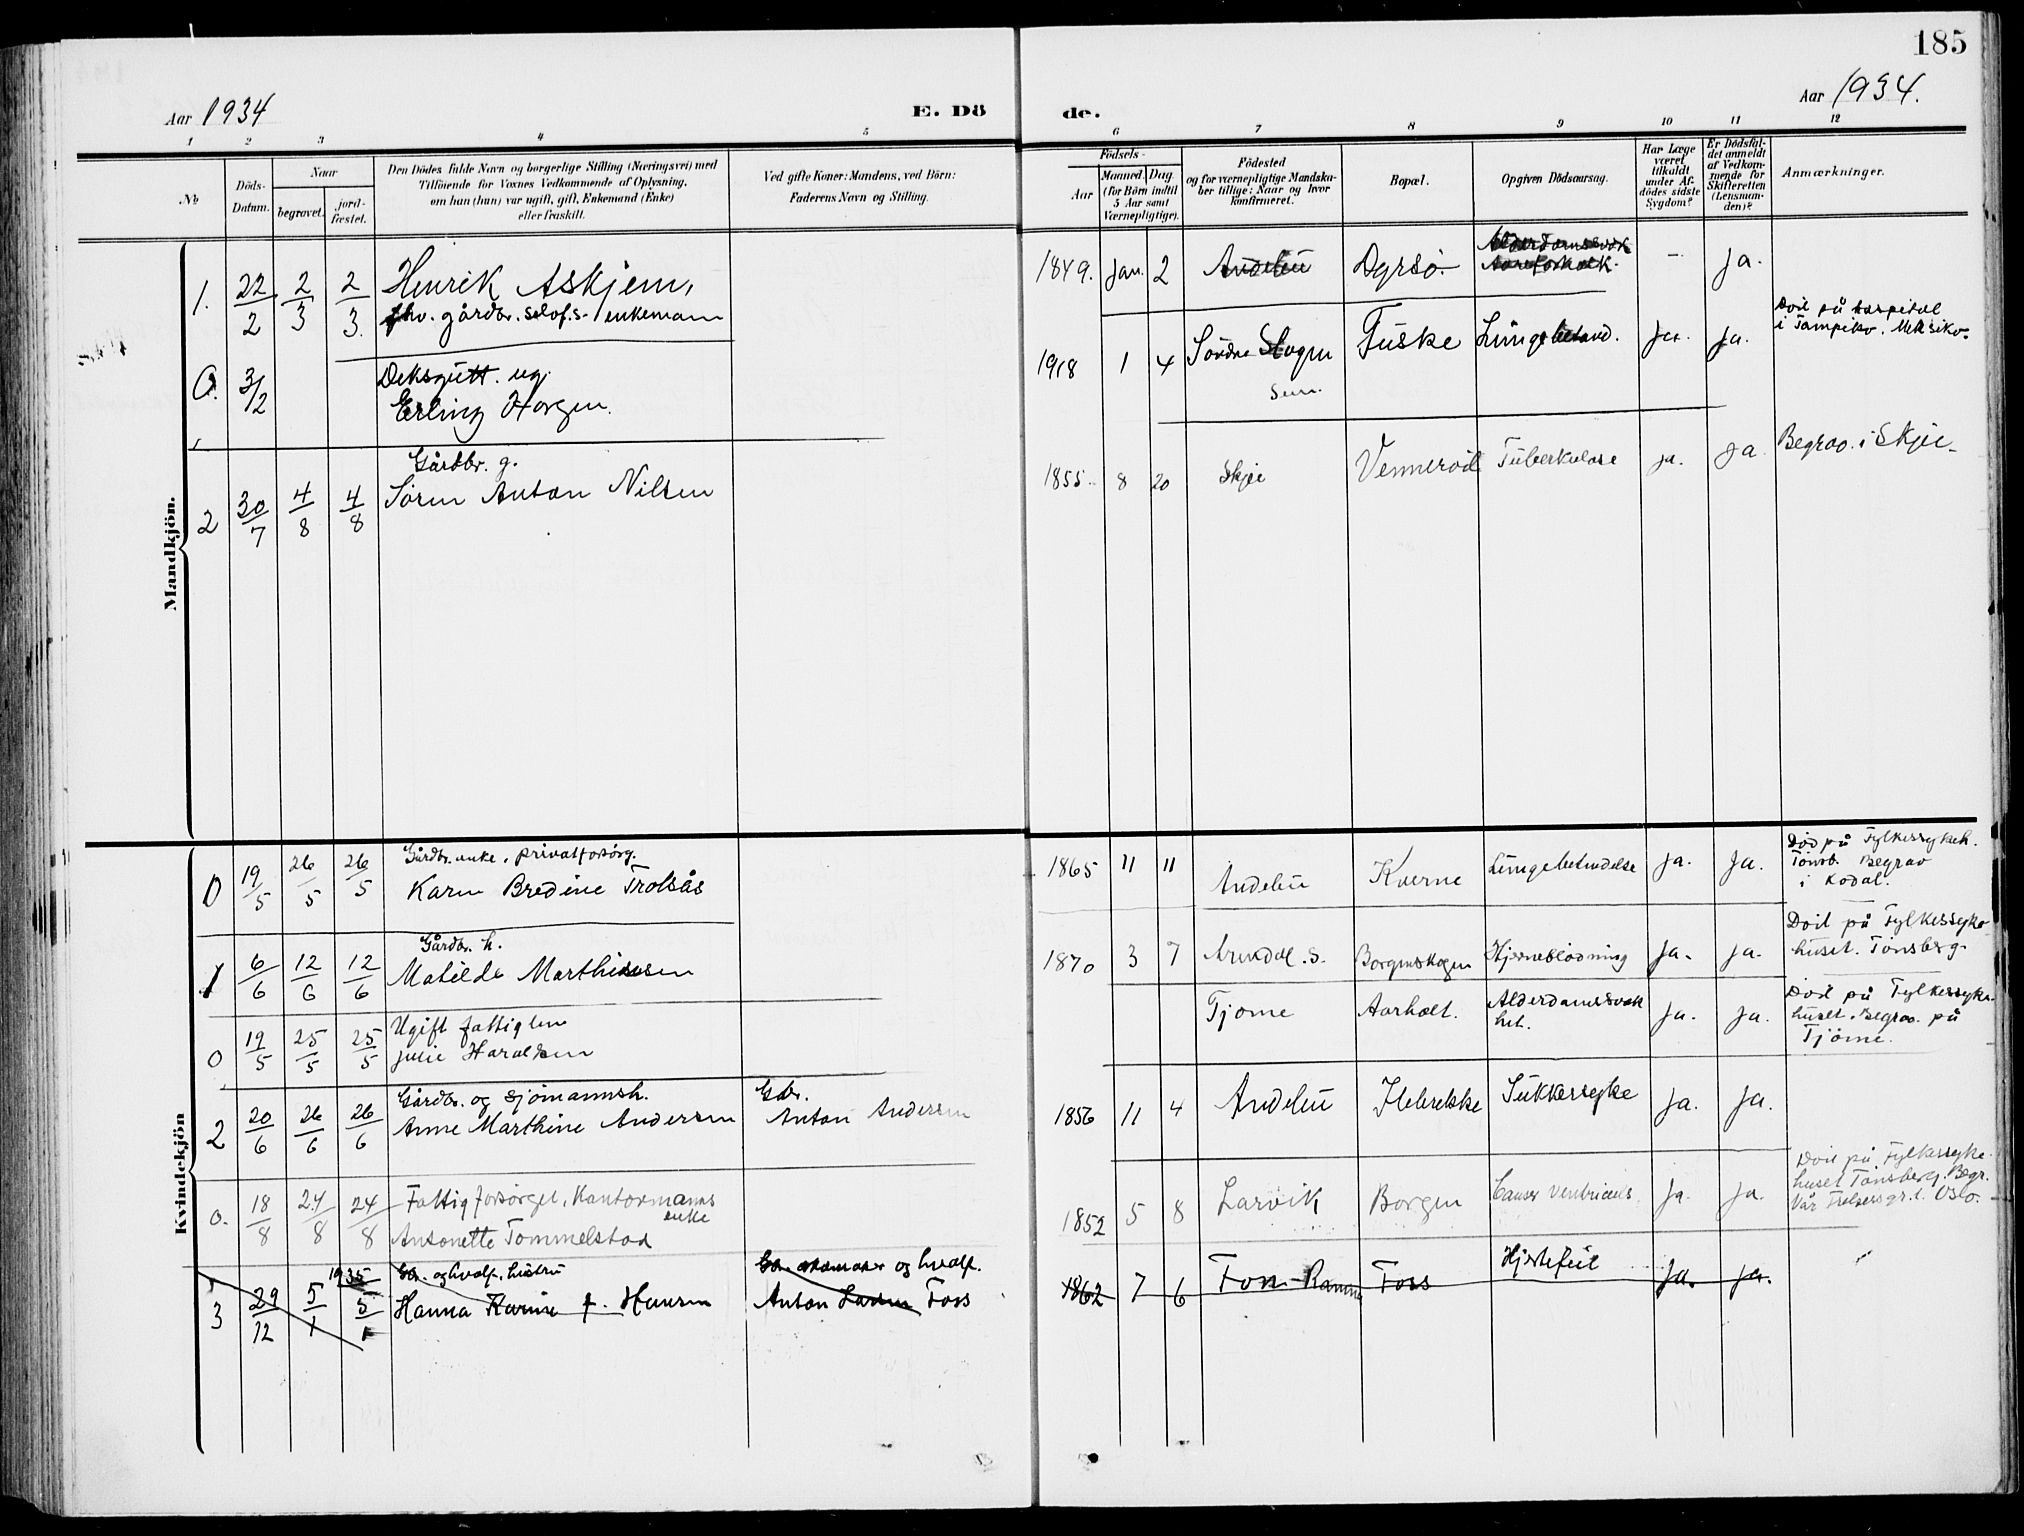 185
Aar 1934
E. Dö
de.
Aar 1934.
1 2 3 4 5
6 7 8 9 10 11 12
No
Döds-
Datum.
Naar
begravet.
jord-
fæstet.
Den Dödes fulde Navn og borgerlige Stilling (Næringsvei) med
Tilföiende for Voxnes Vedkommende af Oplysning,
om han (hun) var ugift, gift, Enkemand (Enke)
eller fraskilt.
Ved gifte Koner: Mandens, ved Börn:
Faderens Navn og Stilling.
Födsels-
Aar
Maaned. Dag
(for Börn indtil
5 Aar samt
Værnepligtige).
Födested
og for værnepligtige Mandska-
ber tillige: Naar og hvor
konfirmeret.
Bopæl.
Opgiven Dödsaarsag.
Har Læge
været
tilkaldt
under Af-
dödes sidste
Sygdom?
Er Dödsfal-
det anmeldt
af Vedkom-
mende for
Skifteretten
(Lensman-
den)?
Anmærkninger.
Mandkjön.
1. 22/2 2/3 2/3. Henrik Askjem,
fhv. gårdbr. selof.s. enkemann
1849. Jan. 2 Andebu Dyrsö Alderdomssvak - ja.
0. 3/2
Deksgutt. ug.
Erling Horgen.
1918 1 4 Söndre Slagen
Sem.
Fuske Lungebetend. Ja. Ja.
Död på hospital
i Tampiko. Meksiko.
2 30/7 4/8 4/8
Gårdbr. g.
Sören Anton Nilsen
1855 8 20 Skjee Venneröd Tuberkulose ja. ja. Begrav. i Skjee
Kvindekjön
0 19/5 26/5 26/5
Gårdbr. enke, privatforsörg.
Karen Bredine Trolsås
1865 11 11 Andebu Kverne Lungebetendelse Ja. Ja.
Död på Fylkessykeh.
Tönsb. Begrav
i Kodal.
1 6/6 12/6 12/6
Gårdbr. h.
Matilde Marthinsen
1870 3 7 Arendal.s. Borgenskogen Hjerneblödning Ja. ja.
Död på Fylkessyke-
huset. Tönsberg.
0 19/5 25/5 25/5
Ugift fattiglem
Julie Haraldsen
Tjöme Aarholt. Alderdomssvak
het. Ja. Ja.
Död på Fylkessyke-
huset. Begrav. på
Tjöme.
2 20/6 26/6 26/6
Gårdbr. og sjömannsh.
Anne Marthine Andersen
Gbr.
Anton Andersen
1856 11 4 Andebu Ilebrekke Sukkersyke Ja. Ja.
0. 18/8 24/8 24/8
Fattigforsörget, Kontormanns
enke
Antonette Tommelstad
1852 5 8 Larvik Borgen Cancer ventriculi Ja. Ja.
Död på Fylkessyke-
huset Tönsberg. Begr.
Vår Frelsers gr.l. Oslo.
3 29/12 5/1 1935 5/1
Gbr. og hvalf. hustru
Hanna Karine f. Hansen
og hvalf.
Anton Larsen Foss
1862 7 6 Fon Ramnes Foss Hjertefeil Ja. Ja.